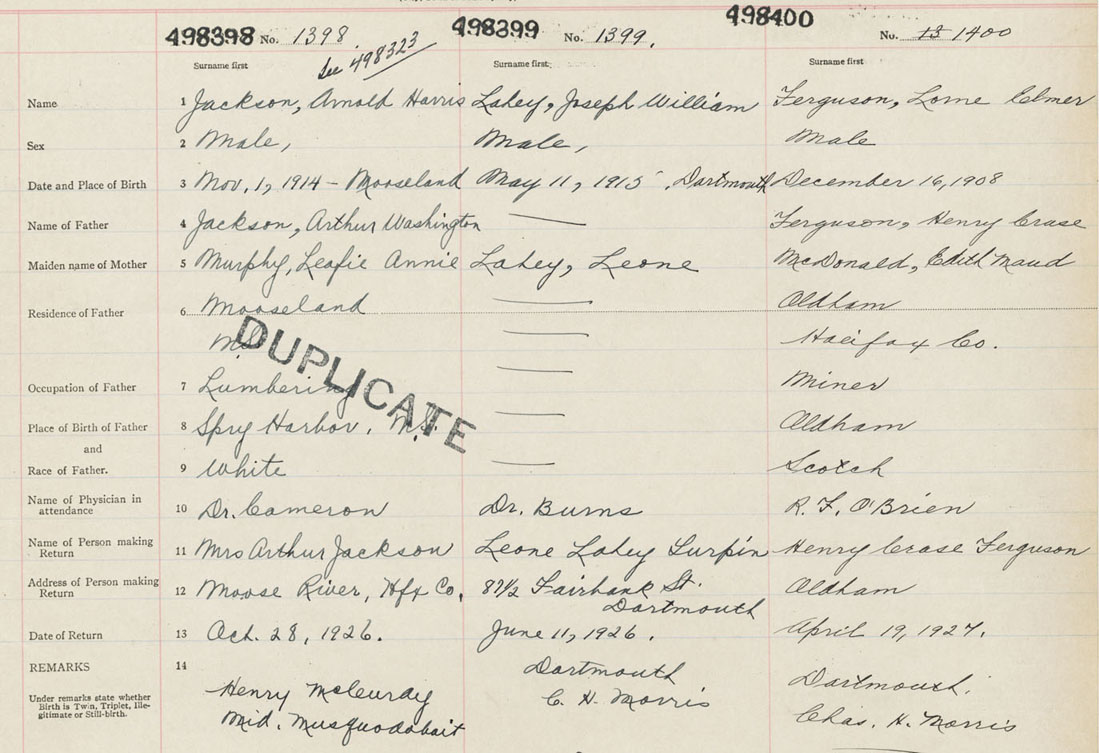 498398 No. 1398. 498399 No. 1399. 498400 No. 13 1400
See 498323
Surname first Surname first Surname first
Name 1 Jackson, Arnold Harris Lahey, Joseph William Ferguson, Lorne Elmer
Sex 2 Male, Male, Male
Date and Place of Birth 3 Nov. 1, 1914 – Mooseland May 11, 1915, Dartmouth December 16, 1908
Name of Father 4 Jackson, Arthur Washington Ferguson, Henry Crase
Maiden name of Mother 5 Murphy, Leafie Annie Lahey, Leone McDonald, Edith Maud
Residence of Father 6 Mooseland Oldham
Halifax Co.
DUPLICATE
Occupation of Father 7 Lumbering Miner
Place of Birth of Father 8 Spry Harbor, N.S. Oldham
and
Race of Father. 9 White Scotch
Name of Physician in
attendance 10 Dr. Cameron Dr. Burns R. F. O'Brien
Name of Person making
Return 11 Mrs Arthur Jackson Leone Lahey Turpin Henry Crase Ferguson
Address of Person making
Return 12 Moose River, Hfx Co. 87½ Fairbank St. Oldham
Dartmouth
Date of Return 13 Oct. 28, 1926. June 11, 1926. April 19, 1927.
REMARKS 14 Dartmouth Dartmouth.
Under remarks state whether
Birth is Twin, Triplet, Ille-
gitimate or Still-birth.
Henry McCurdy C. H. Morris Chas. H. Morris
Mid. Musquodoboit